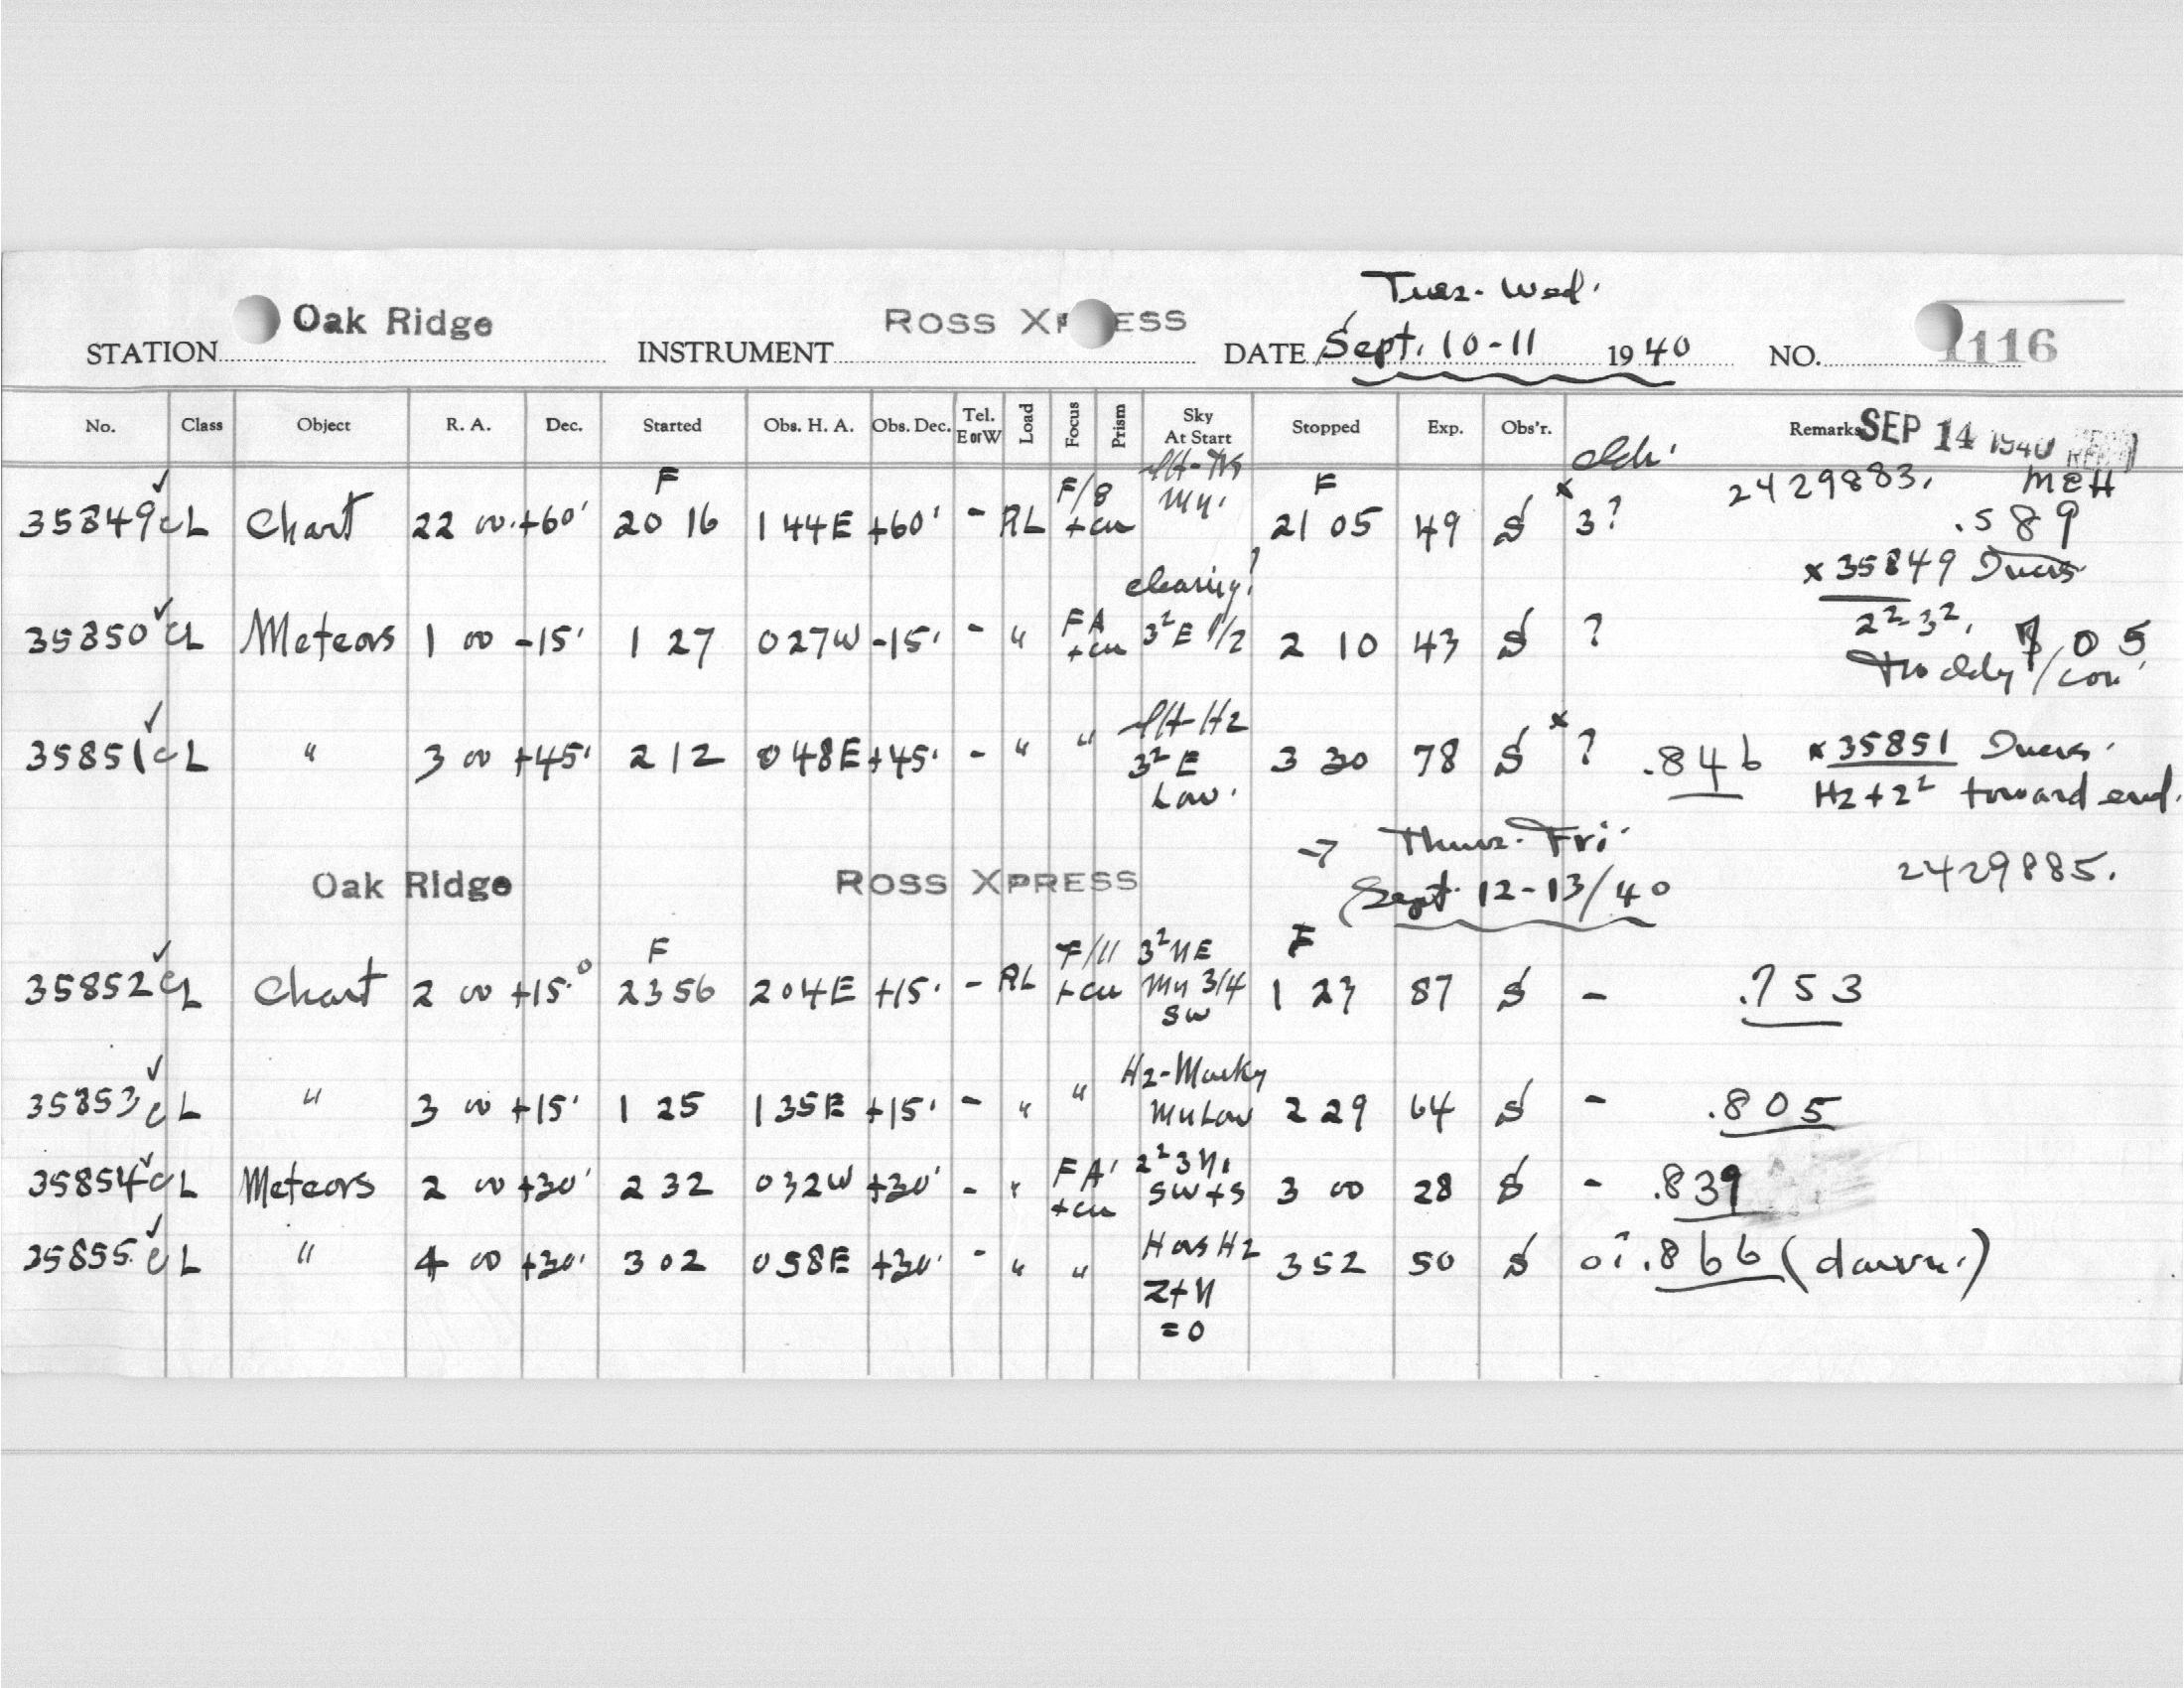 Tues- Wed.
Oak Ridge ROSS XPRESS
STATION INSTRUMENT DATE Sept. 10-11 1940 NO. 1116
No. Class Object R. A. Dec. Started Obs. H. A. Obs. Dec. Tel. E or W Load Focus Prism Sky At Start Stopped Exp. Obs'r. Remarks SEP 14 1940
F F/8 F 2429883. MEH
35849 CL Chart 22 00 +60' 20 16 1 44E +60' - RL +cu Mn. 21 05 49 S x 3? .589
x 35849 Ducks
clearing!
35850 CL Meteors 1 00 -15' 1 27 0 27W -15' - " FA +cu 3² E 1/2 2 10 43 S ? 2²-3², .805
35851 CL " 3 00 +45' 2 12 0 48E +45' - " " Ht-Hz 3² E Low. 3 30 78 S x ? .846 x 35851 Ducks.
Hz + 2² toward end.
→ Thurs- Fri.
Oak Ridge ROSS XPRESS Sept. 12-13/40 2429885.
F F/11 3² NE F
35852 CL Chart 2 00 +15° 23 56 2 04E +15' - RL +cu Mn 3/4 SW 1 23 87 S - .753
35853 CL " 3 00 +15' 1 25 1 35E +15' - " " Hz-Murky Mn Low 2 29 64 S - .805
35854 CL Meteors 2 00 +30' 2 32 0 32W +30' - " FA' +cu 2² 3 N. SW + S 3 00 28 S - .839
35855 CL " 4 00 +30' 3 02 0 58E +30' - " " H as Hz Z + N = 0 3 52 50 S .866 (dawn.)